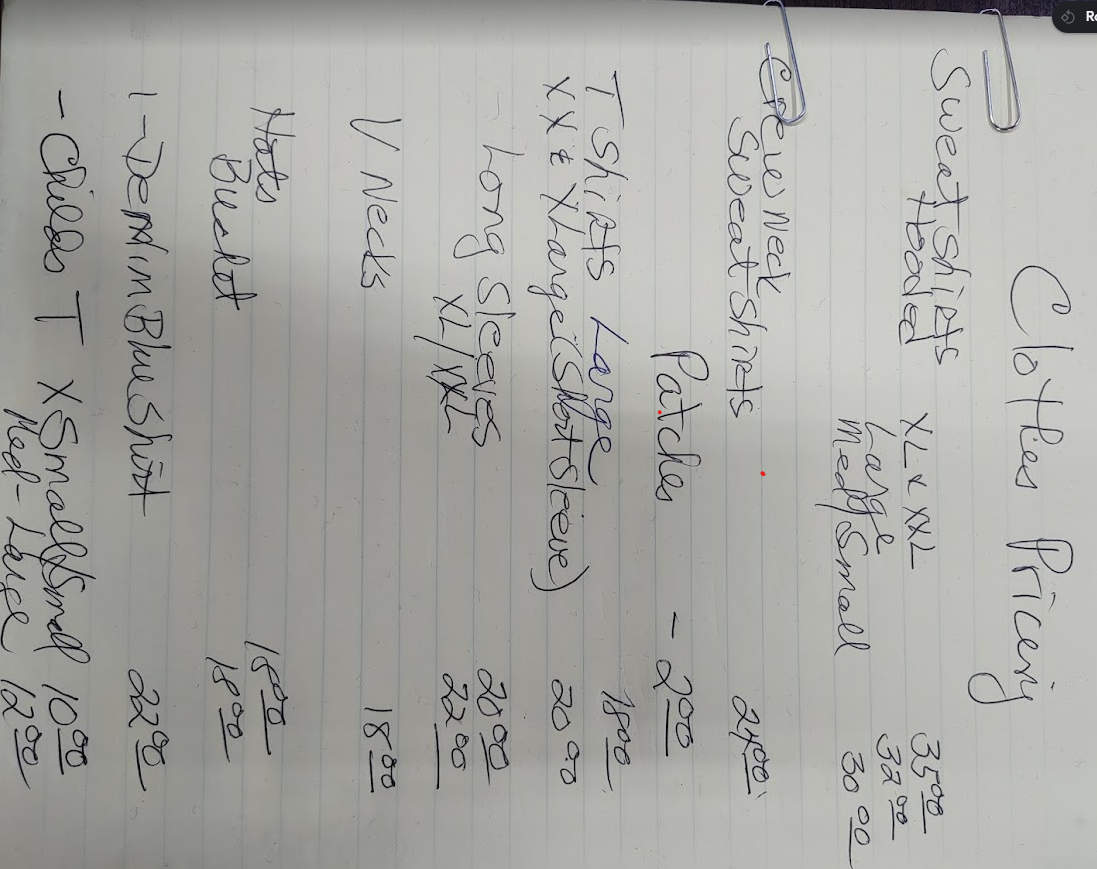 Clothes Priceing
Sweat Shirts
Hooded XL & XXL 35.00
Large 32.00
Med/Small 30.00
Crew Neck
Sweat Shirts 24.00
Patches - 2.00
T Shirts Large 18.00
XX & XLarge (Short Sleeve) 20.00
- Long Sleeves 20.00
XL/XXL 22.00
V Necks 18.00
Hats 18.00
Bucket 18.00
1-Denim Blue Shirt 22.00
- Childs T XSmall/Small 10.00
Med-Large 12.00